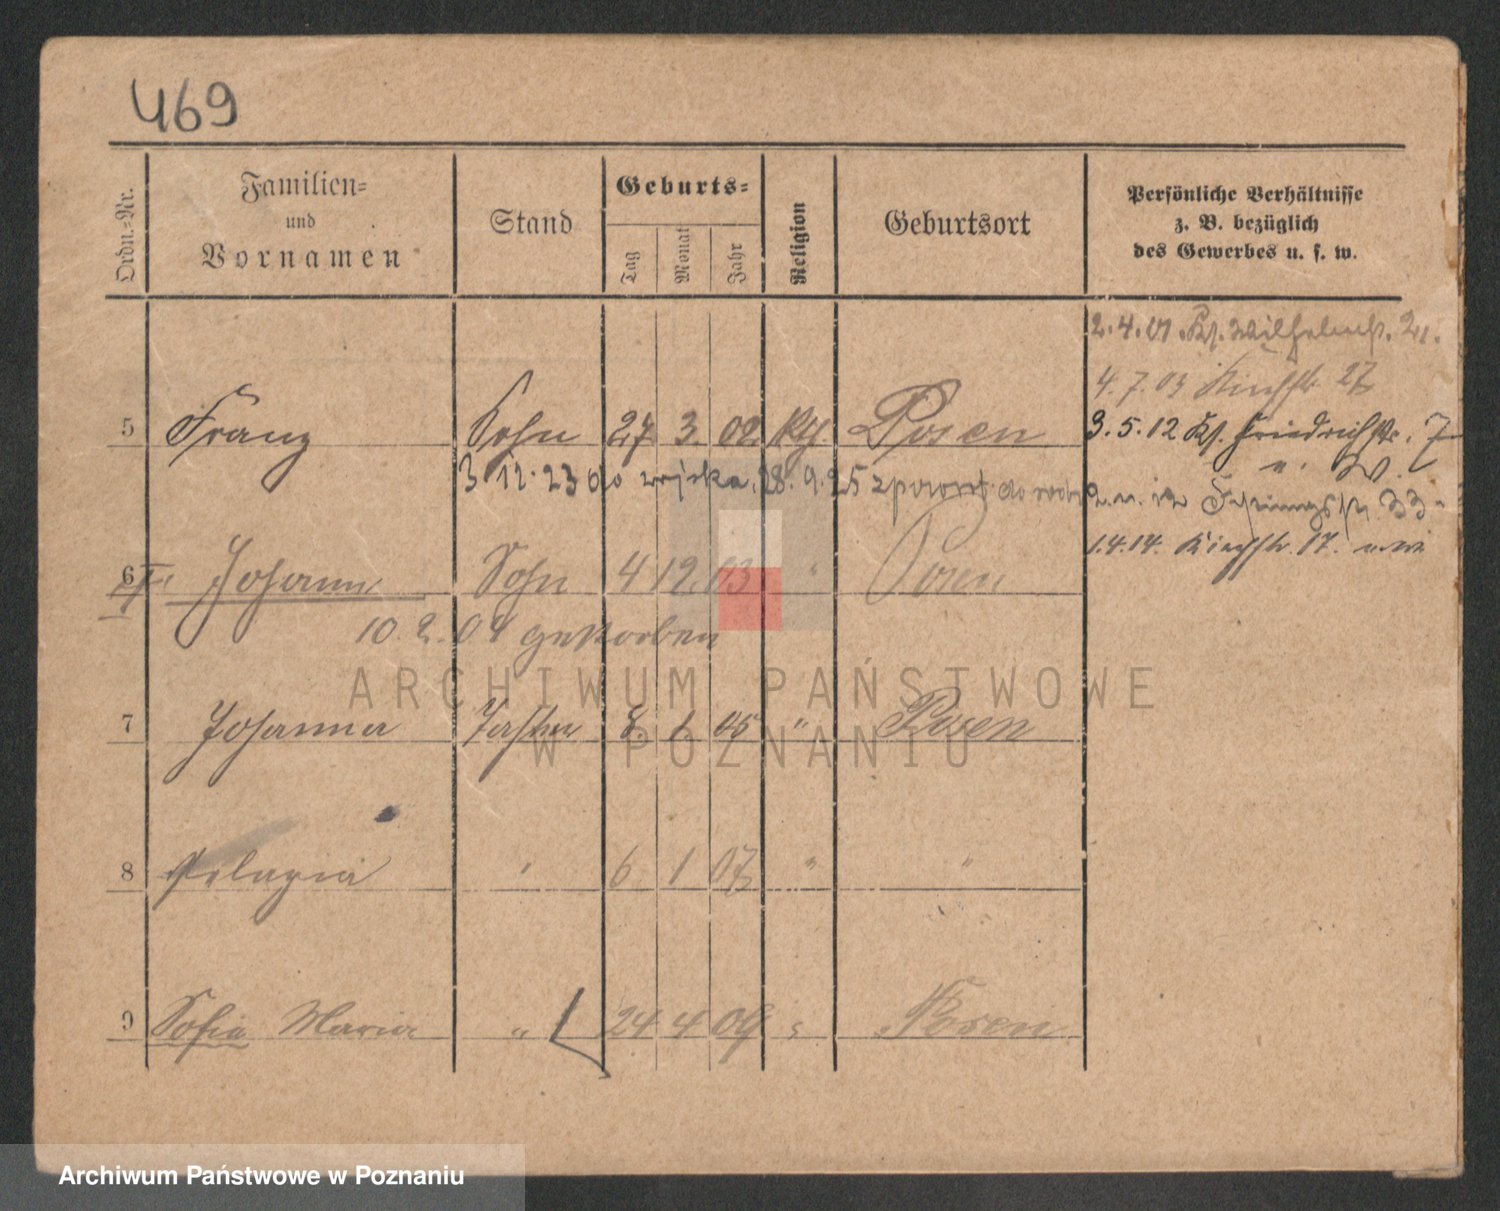 469
Ordn.-Nr.
Familien-
und
Vornamen
Stand
Geburts-
Tag
Monat
Jahr
Religion
Geburtsort
Persönliche Verhältnisse
z. B. bezüglich
des Gewerbes u. s. w.
2.4.01. Kl. Wilhelmst. 21.
4.7.03 Kirchstr. 27
5 Franz Sohn 27 3 02 kth. Posen
3.5.12 Kl. Friedrichstr. 7
u. W.
3 12. 23 do wojska. 28. 9. 25 z powrot do
2. 11. 12 33
1.4.14. Kirchstr. 17.
6 Johann Sohn 4 12 03 " Posen
10. 2. 04 gestorben
7 Johanna Tochter 8. 1 05 " Posen
8 Pelagia " 6 1 07 " "
9 Sofia Maria " 24 4 09 " Posen
ARCHIWUM PAŃSTWOWE
W POZNANIU
Archiwum Państwowe w Poznaniu